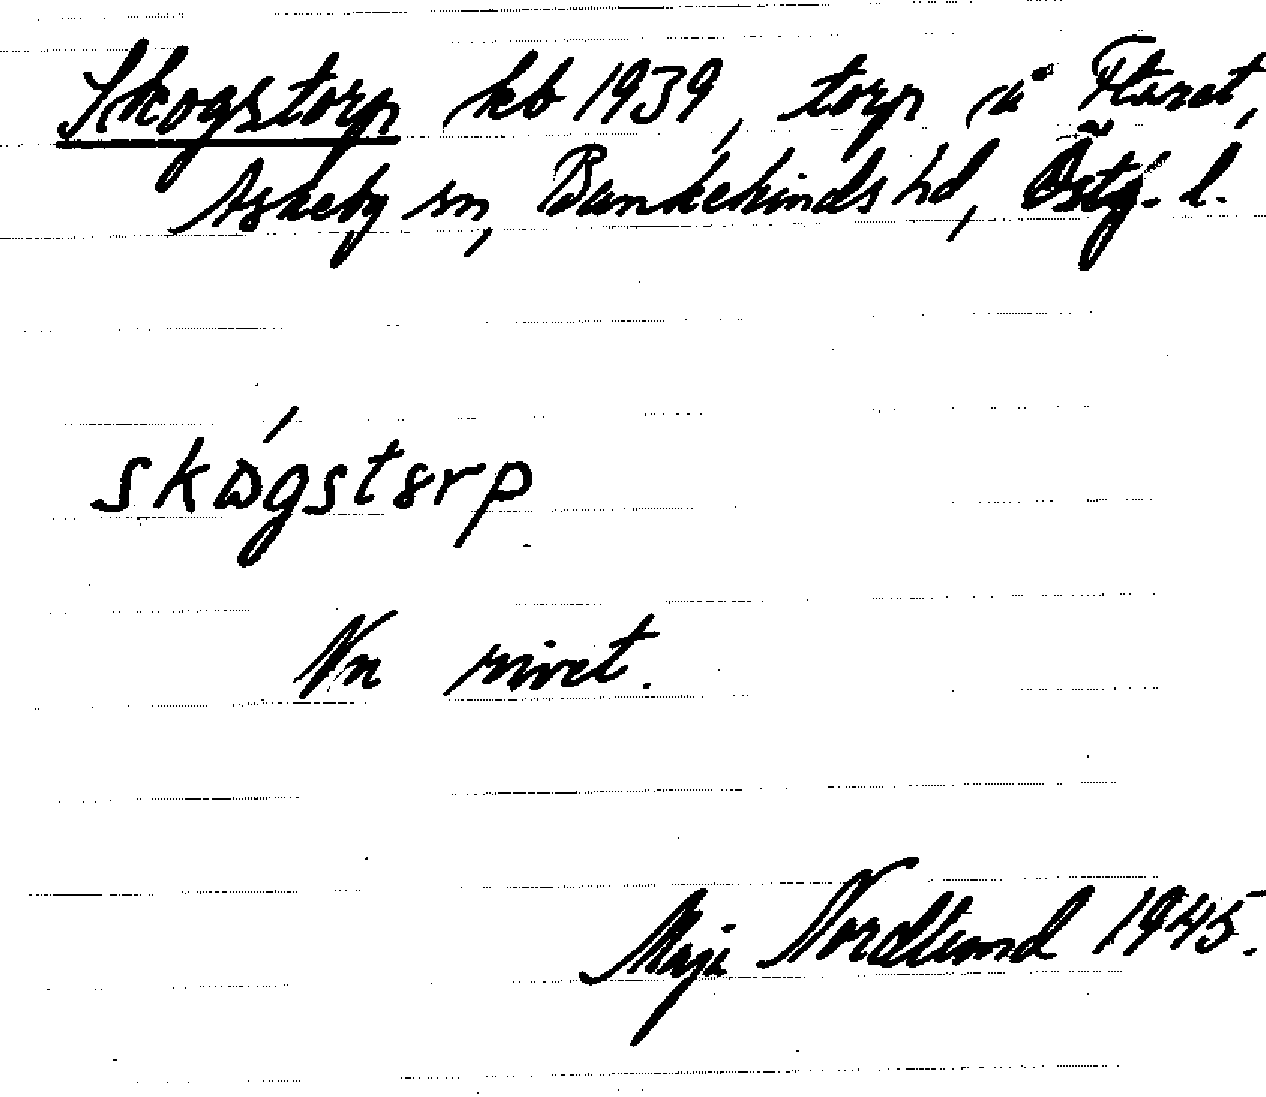 Skogstorp kb 1939, torp u Flaret,
Askeby sn, Bankekinds hd, Östg. l.
skògstɞrp
Nn rivet.
Maja Nordlund 1945.